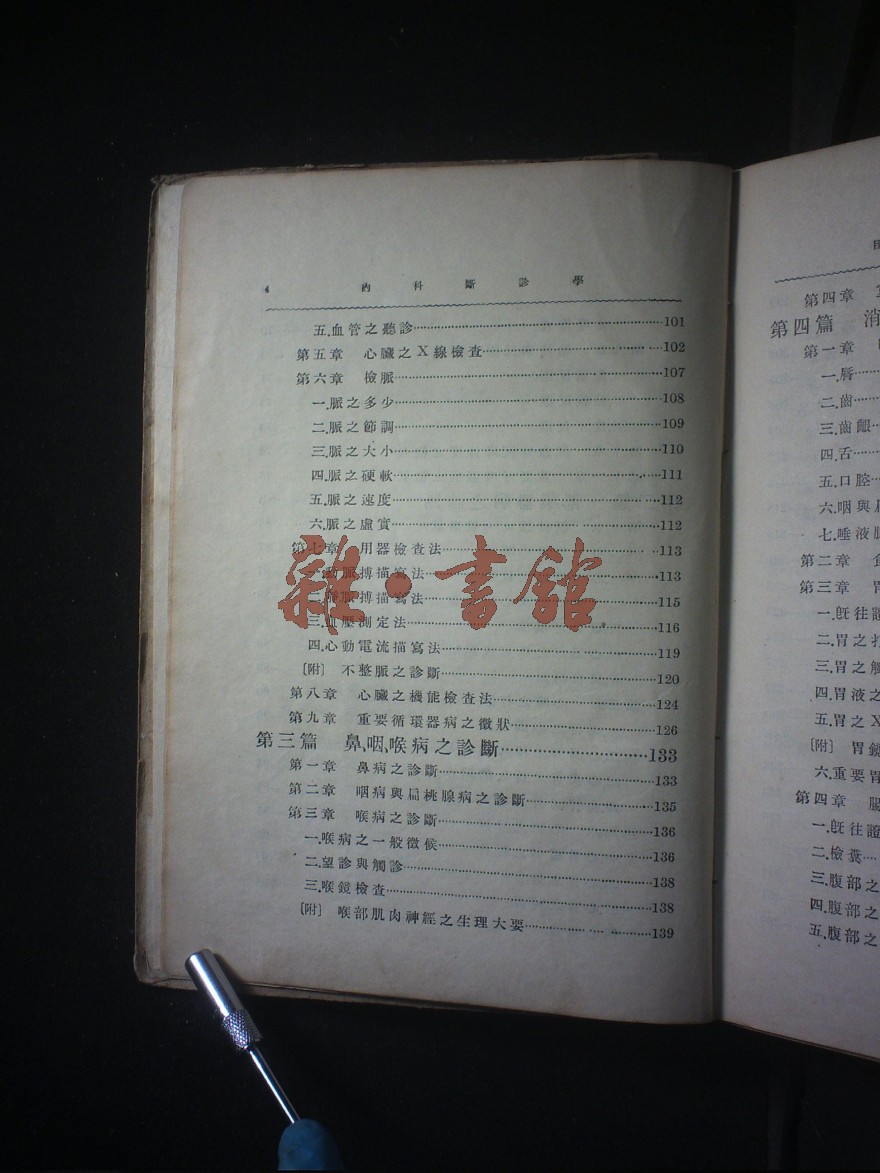 4 內科斷診學
五.血管之聽診 101
第五章 心臟之X線檢查 102
第六章 檢脈 107
一.脈之多少 108
二.脈之節調 109
三.脈之大小 110
四.脈之硬軟 111
五.脈之速度 112
六.脈之虛實 112
第七章 用器檢查法 113
一.動脈搏描寫法 113
二.靜脈搏描寫法 115
三.血壓測定法 116
四.心動電流描寫法 119
[附] 不整脈之診斷 120
第八章 心臟之機能檢查法 124
第九章 重要循環器病之徵狀 126
第三篇 鼻、咽、喉病之診斷 133
第一章 鼻病之診斷 133
第二章 咽病與扁桃腺病之診斷 135
第三章 喉病之診斷 136
一.喉病之一般徵候 136
二.望診與觸診 138
三.喉鏡檢查 138
[附] 喉部肌肉神經之生理大要 139
雜·書館
第四章
第四篇 消
第一章
一.唇
二.齒
三.齒齦
四.舌
五.口腔
六.咽與扁
七.唾液腺
第二章 食
第三章 胃
一.旣往證
二.胃之打
三.胃之觸
四.胃液之
五.胃之X
[附] 胃鏡
六.重要胃
第四章 腸
一.旣往證
二.檢糞
三.腹部之
四.腹部之
五.腹部之